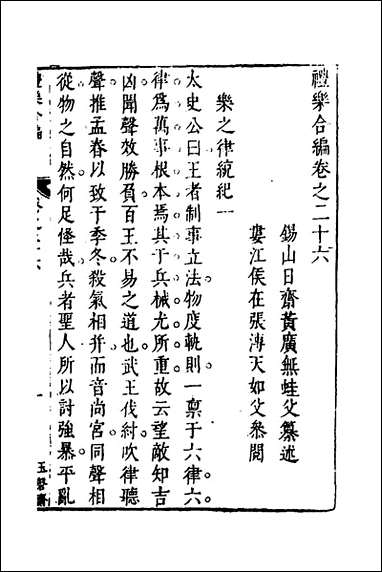 禮樂合編卷之二十六
錫山日齋黃廣無蛙父纂述
婁江侯在張溥天如父叅閱
樂之律統紀一
太史公曰王者制事立法物度軌則一禀于六律六
律爲萬事根本焉其于兵械尤所重故云望敵知吉
凶聞聲效勝負百王不易之道也武王伐紂吹律聽
聲推孟春以致于季冬殺氣相并而音尚宮同聲相
從物之自然何足怪哉兵者聖人所以討強暴平亂
禮樂合編
一
玉磬齋